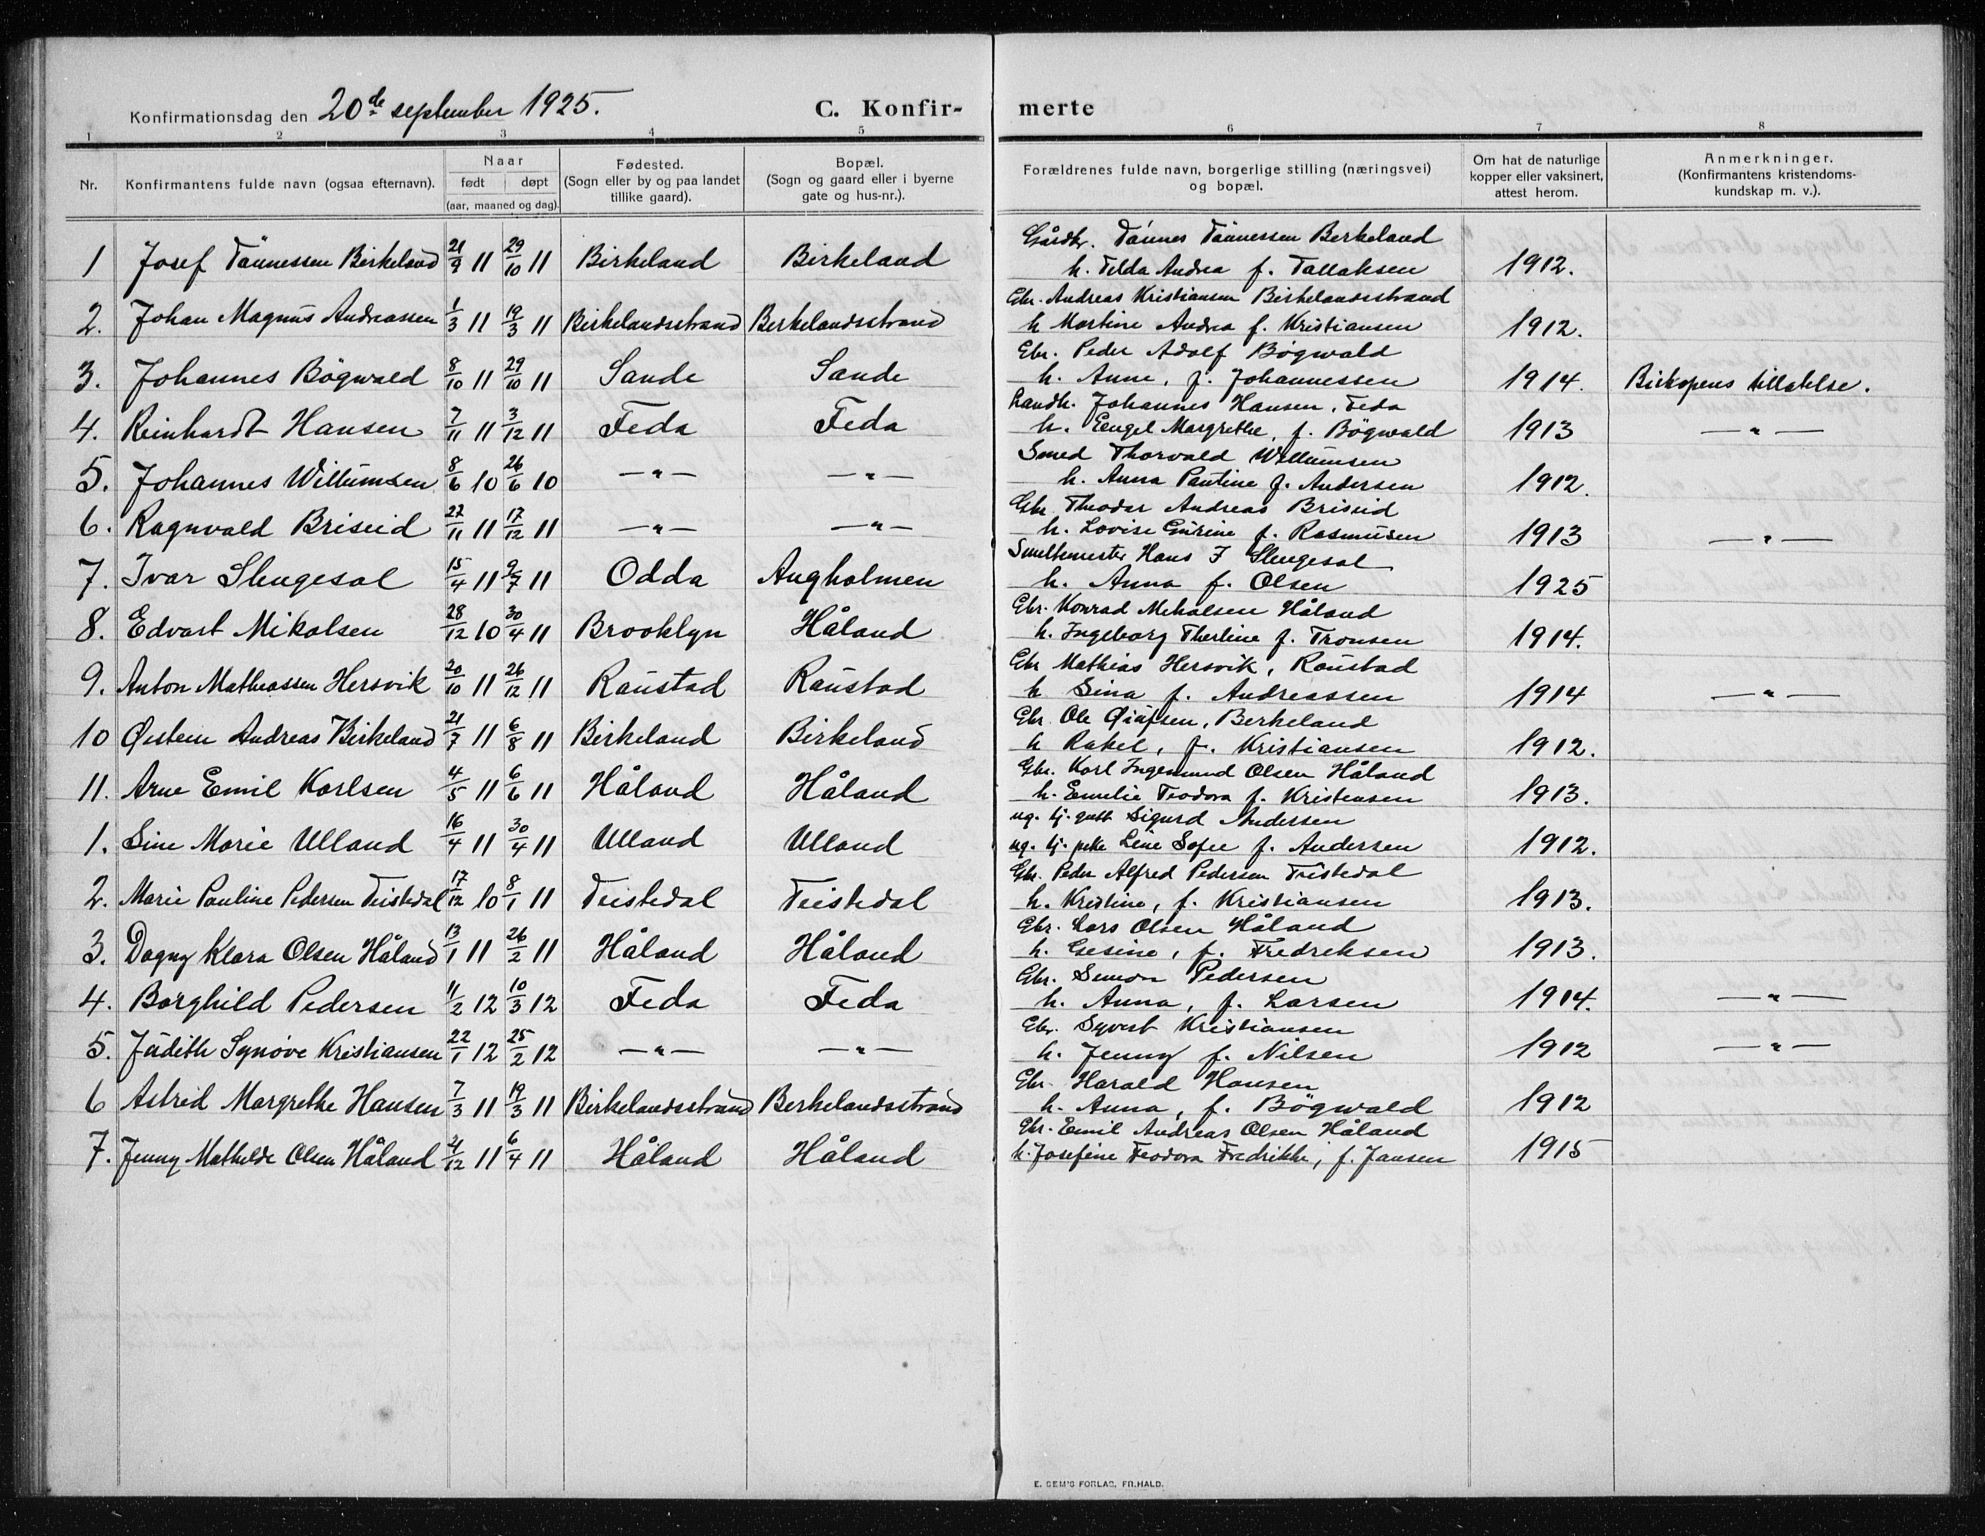 Konfirmationsdag den 20de september 1925.
C. Konfir-
merte
1 2 3 4 5 6 7 8
Nr.
Konfirmantens fulde navn (ogsaa efternavn).
Naar
født døpt
(aar, maaned og dag).
Fødested.
(Sogn eller by og paa landet
tillike gaard).
Bopæl.
(Sogn og gaard eller i byerne
gate og hus-nr.).
Forældrenes fulde navn, borgerlige stilling (næringsvei)
og bopæl.
Om hat de naturlige
kopper eller vaksinert,
attest herom.
Anmerkninger.
(Konfirmantens kristendoms-
kundskap m. v.).
Gårdbr. Tønnes Tønnessen Berkeland
1 Josef Tønnessen Birkeland 21/9 11 29/10 11 Birkeland Birkeland h. Tilda Andrea f. Tallaksen 1912.
Gbr. Andreas Kristiansen Birkelandsstrand
2. Johan Magnus Andreassen 1/3 11 19/3 11 Birkelandsstrand Berkelandsstrand h Martine Andrea f. Kristiansen 1912.
Gbr. Peder Adolf Bøgwald
3. Johannes Bøgwald 8/10 11 29/10 11 Sande Sande h. Anne, f. Johannessen 1914. Biskopens tillatelse.
Landh. Johannes Hansen, Feda
4. Reinhardt Hansen 7/11 11 3/12 11 Feda Feda h. Engel Margrethe, f. Bøgwald 1913 —"—
Smed Thorvald Willumsen
5. Johannes Willumsen 8/6 10 26/6 10 —"— —"— h. Anna Pauline f. Andersen 1912.
Gbr Theodor Andreas Briseid
6. Ragnvald Briseid 27/11 11 17/12 11 —"— —"— h. Lovise Gurine f. Rasmussen 1913 —"—
Smeltemester Hans J Slengesol
7. Ivar Slengesol 15/4 11 9/7 11 Odda Angholmen h. Anna f. Olsen 1925
Gbr. Konrad Mekalsen Håland
8. Edvart Mikalsen 28/12 10 30/4 11 Brooklyn Håland h. Ingeborg Therline f. Tronsen 1914.
Gbr Mathias Hersvik, Raustad
9. Anton Matheassen Hersvik 20/10 11 26/12 11 Raustad Raustad h Sina f. Andreassen 1914 —"—
Gbr. Ole, Berkeland
10 Øistein Andreas Birkeland 21/7 11 6/8 11 Birkeland Birkeland h Rakel, f. Kristiansen 1912.
Gbr. Karl Ingemund Olsen Håland
11. Arne Emil Karlsen 4/5 11 6/6 11 Håland Håland h. Emelie Teodora f. Kristensen 1913.
ug. tj. gutt Sigurd Andersen
1. Sine Marie Ulland 16/4 11 30/4 11 Ulland Ulland ug. tj. pike Line Sofie f. Andersen 1912.
Gbr. Peder Alfred Pedersen Teistedal
2. Marie Pauline Pedersen Teistedal 17/12 10 8/1 11 Teistedal Teistedal h. Kristine, f. Kristiansen 1913.
Gbr. Lars Olsen Håland
3. Dagny Klara Olsen Håland 13/1 11 26/2 11 Håland Håland h. Gesine, f. Fredriksen 1913.
Gbr. Simon Pedersen
4. Borghild Pedersen 11/2 12 10/3 12 Feda Feda h. Anna, f. Larsen 1914. —"—
Gbr. Syvert Kristiansen
5. Judith Synøve Kristiansen 22/1 12 25/2 12 —"— —"— h. Jenny f. Nilsen 1912 —"—
Gbr. Harald Hansen
6 Astrid Margrethe Hansen 7/3 11 19/3 11 Birkelandsstrand Berkelandsstrand h. Anna, f. Bøgwald 1912
Gbr. Emil Andreas Olsen Håland
7. Jenny Mathilde Olsen Håland /12 11 6/4 11 Håland Håland h. Josefine Teodora Fredrikke, f. Jansen 1915
E. SEM'S FORLAG, FR.HALD.